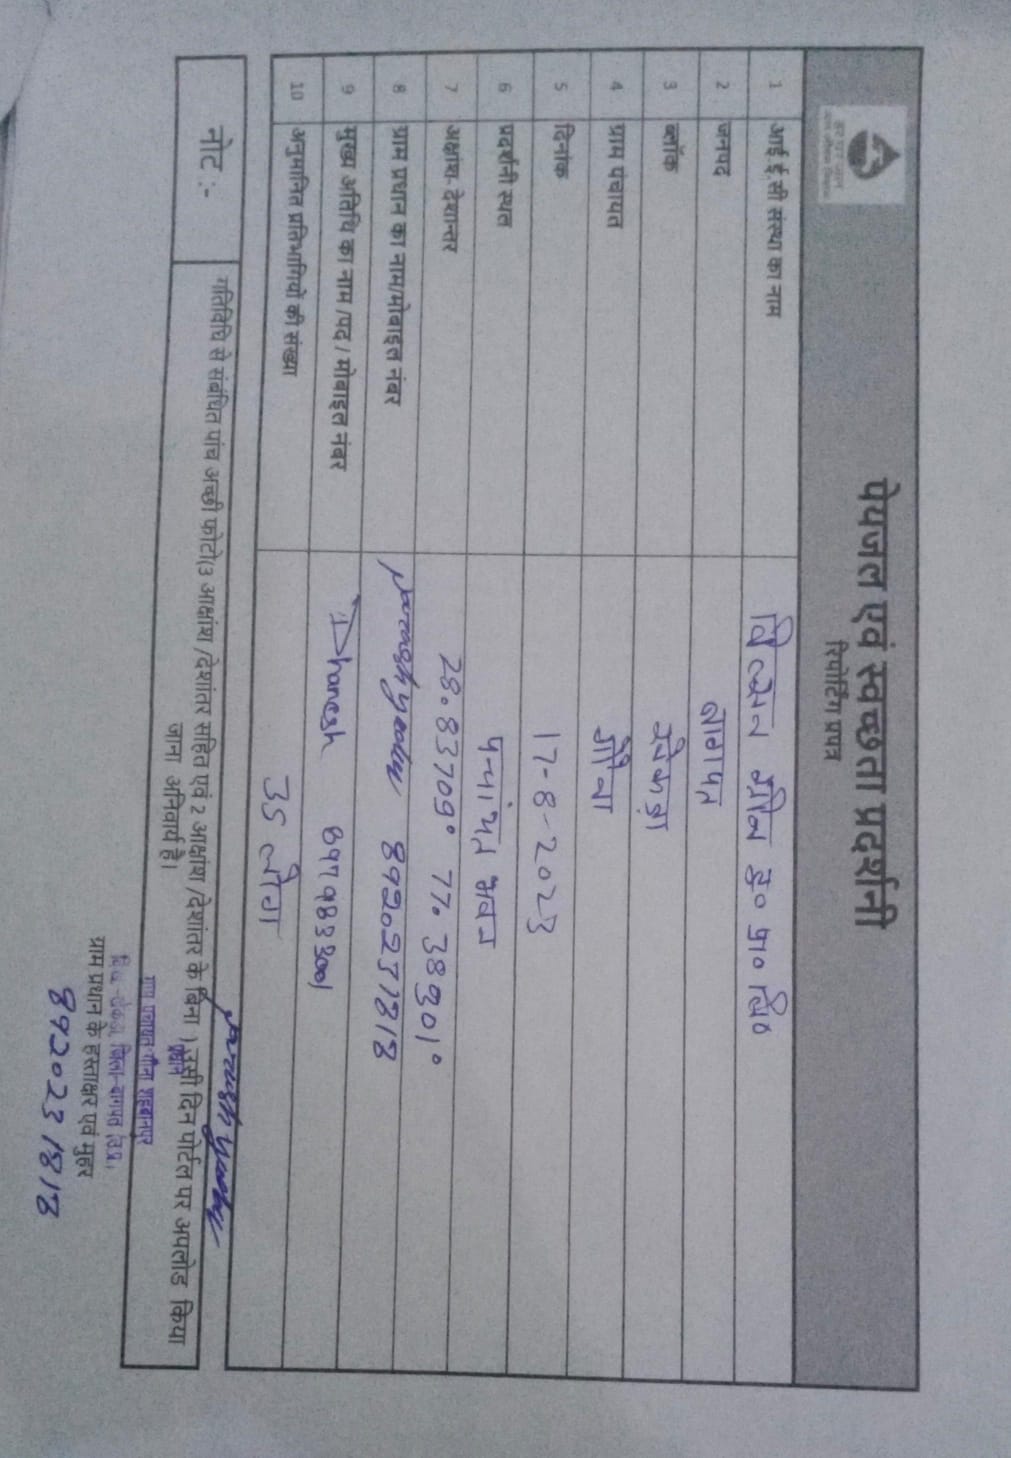 पेयजल एवं स्वच्छता प्रदर्शनी
रिपोर्टिंग प्रपत्र
1 आई.ई.सी संस्था का नाम विजन ग्रीन इ० प्रा० लि०
2 जनपद बागपत
3 ब्लॉक खेकड़ा
4 ग्राम पंचायत गौना
5 दिनांक 17-8-2023
6 प्रदर्शनी स्थल पन्चांयत भवन
7 अक्षांश- देशान्तर 28.83709° 77.38301°
8 ग्राम प्रधान का नाम/मोबाइल नंबर 8920231818
9 मुख्य अतिथि का नाम /पद / मोबाइल नंबर Dhanesh
10 अनुमानित प्रतिभागियों की संख्या 35 लोग
नोट :- गतिविधि से संबंधित पांच अच्छी फोटो(3 आक्षांश /देशांतर सहित एवं 2 आक्षांश /देशांतर के बिना ) उसी दिन पोर्टल पर अपलोड किया
जाना अनिवार्य है।
प्रधान
ग्राम प्रधान के हस्ताक्षर एवं मुहर
8920231818